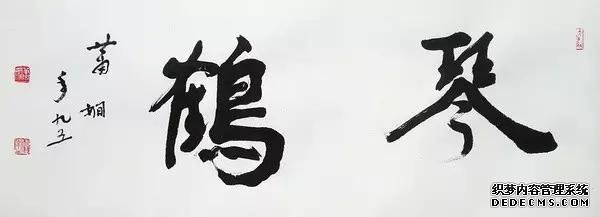 琴鶴
蕭嫺
年九五
织梦内容管理系统
DEDECMS.COM